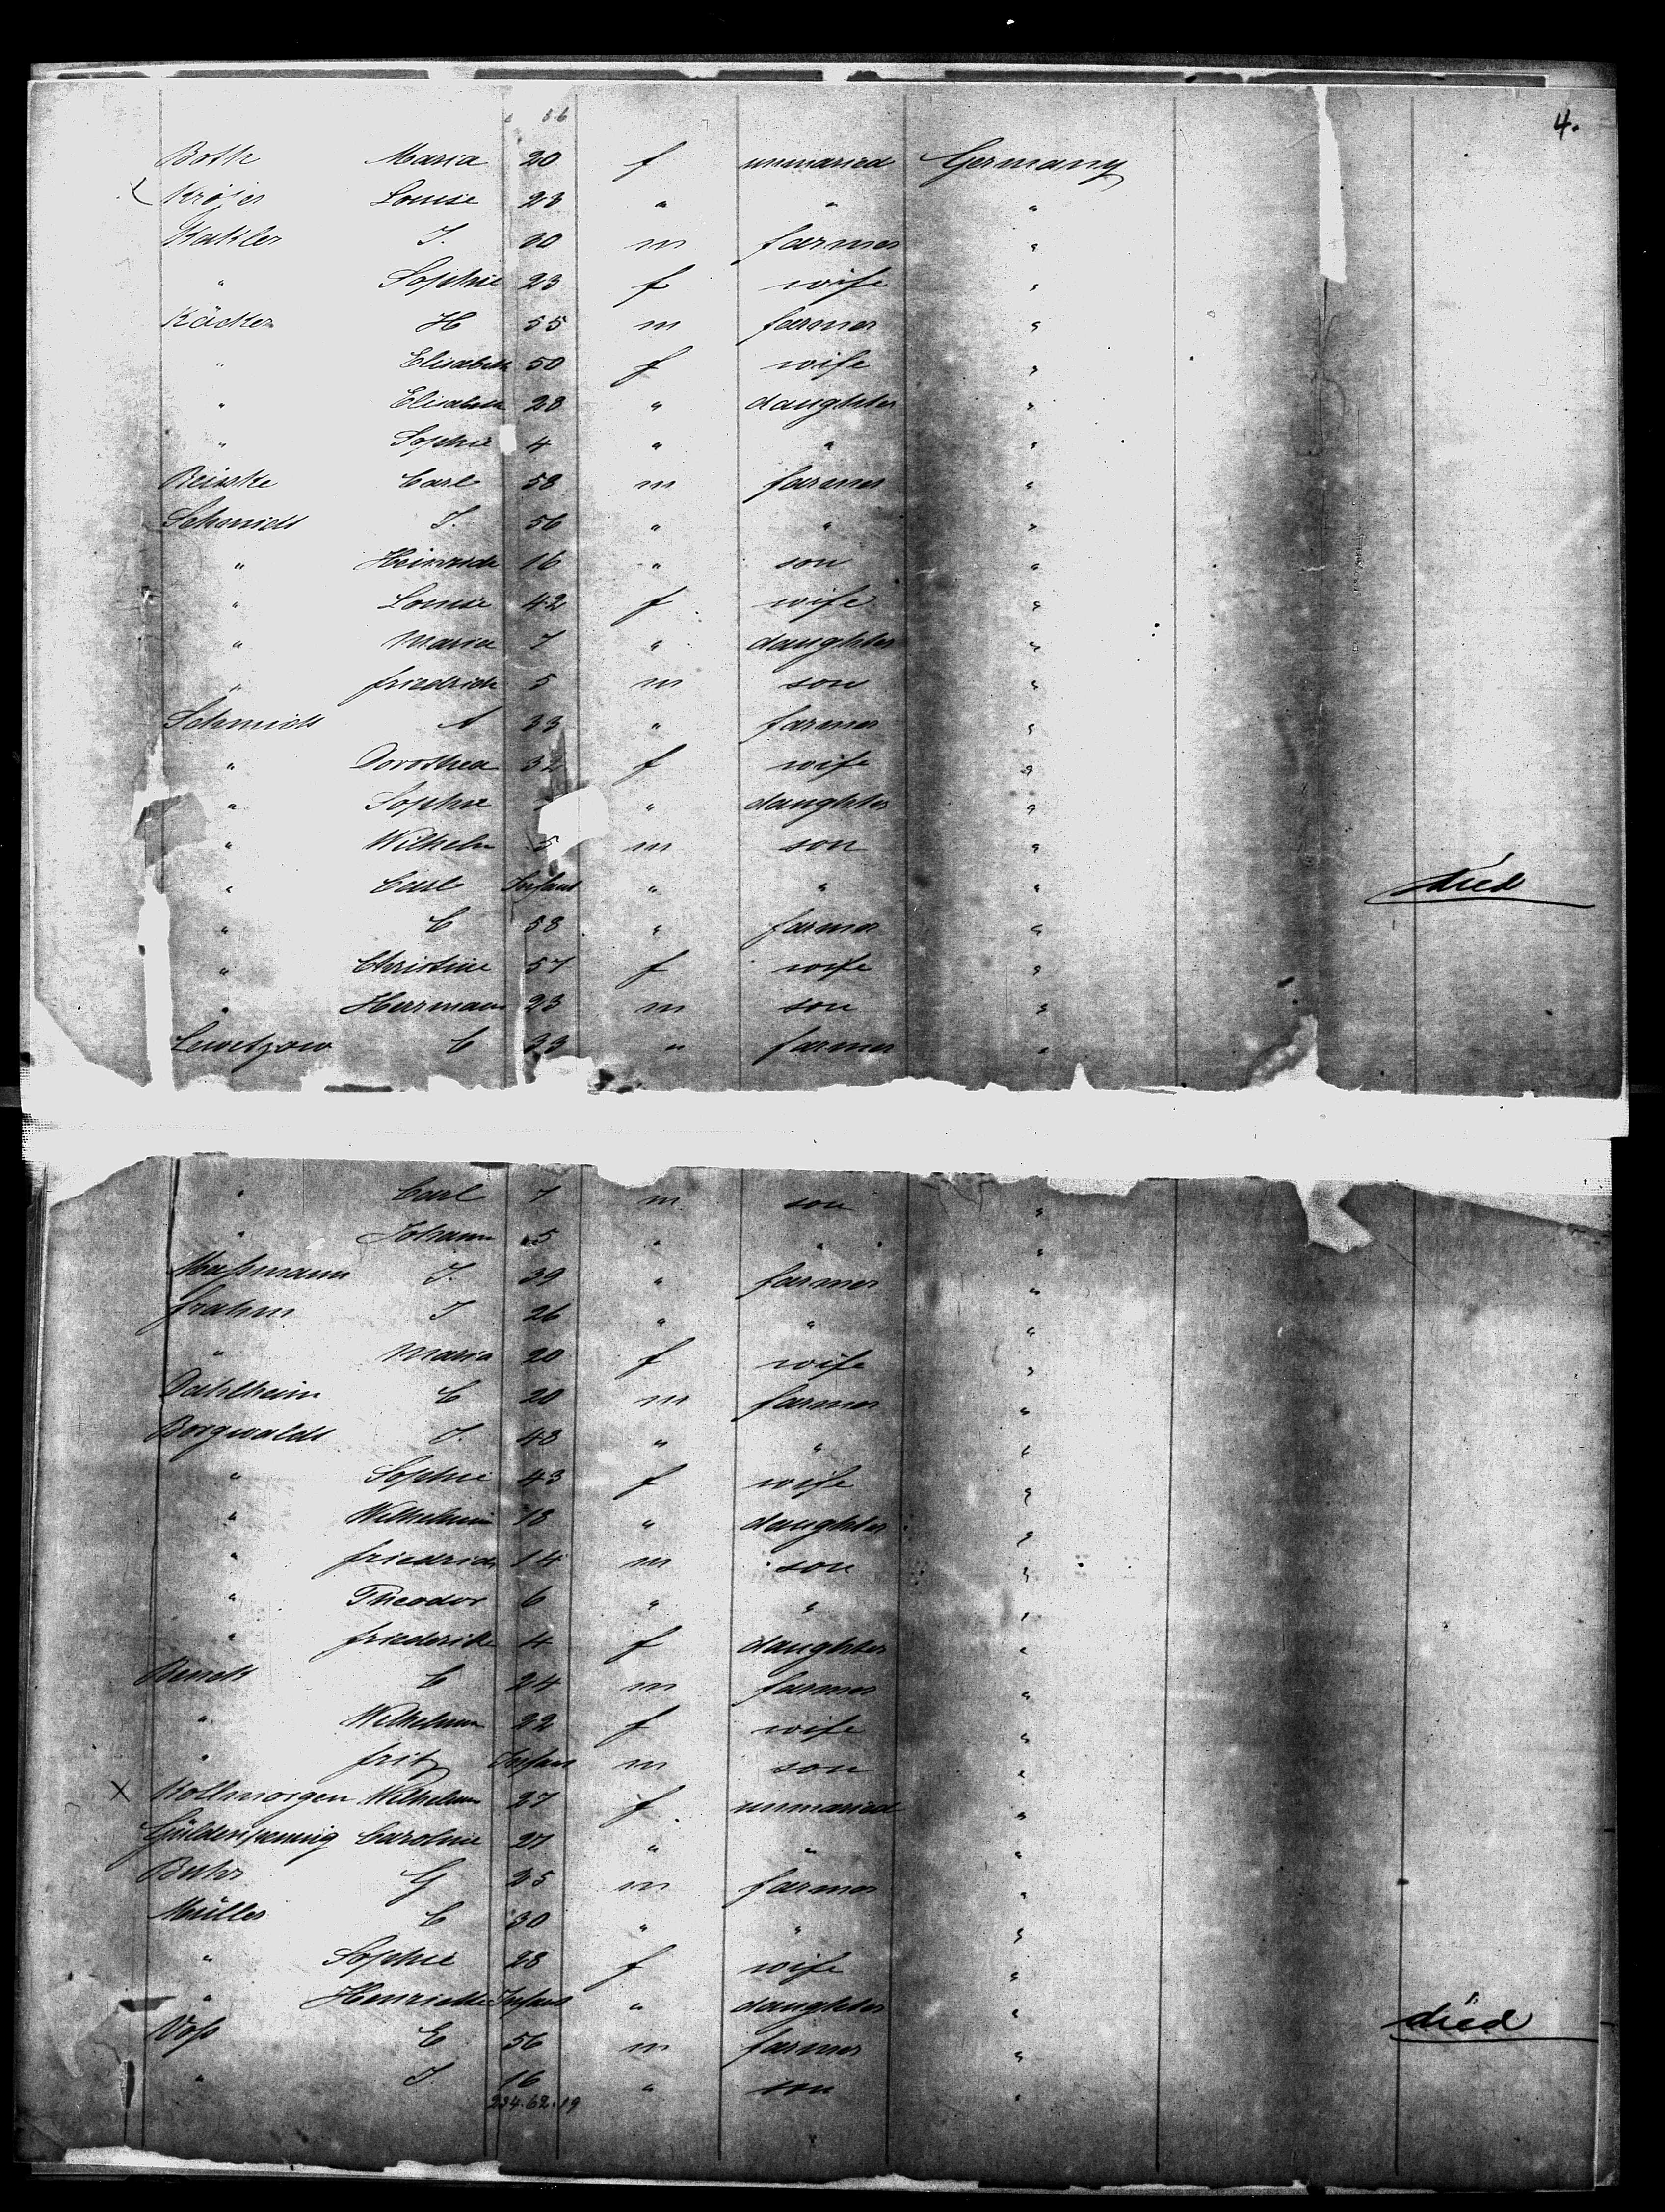 4.
Both Maria 20 f unmaried Germany
Kröjer Louise 23 " " "
J. 30 m farmer "
" Sophie 23 f wife "
Käcker H 55 m farmer "
" Elisabeth 50 f wife "
" Elisabeth 28 " daughter "
" Sophie 4 " " "
Reinke Carl 58 m farmer "
Schmidt J. 56 " " "
" Heinrich 16 " son "
" Louise 42 f wife "
" Maria 7 " daughter "
" friedrich 5 m son "
Schmidt A 33 " farmer "
" Dorothea 32 f wife "
" Sophie " daughter "
" Wilhelm 5 m son "
" Carl Infant " " " died
" C 58 " farmer "
" Christine 57 f wife "
" Herrmann 23 m son "
Lewetzow C 33 " farmer "
" Carl 7 m son "
" Johann 5 " " "
Maßmann J. 39 " farmer "
frahm J 26 " " "
" Maria 20 f wife "
Dahlheim C 20 m farmer "
Borgwaldt J. 48 " " "
" Sophie 43 f wife "
" Wilhelmin 18 " daughter "
" friedrich 14 m son "
" Theodor 6 " " "
" friederike 4 f daughter "
C 24 m farmer "
" Wilhelmin 22 f wife "
" fritz Infant m son "
X Kollmorgen Wilhelmin 27 f unmaried "
Güldenpennig Caroline 27 " " "
Buhr G 25 m farmer "
Müller C 30 " " "
" Sophie 28 f wife "
" Henriette Infant " daughter " died
Voß E 56 m farmer "
" J. 16 " son "
234.62.19